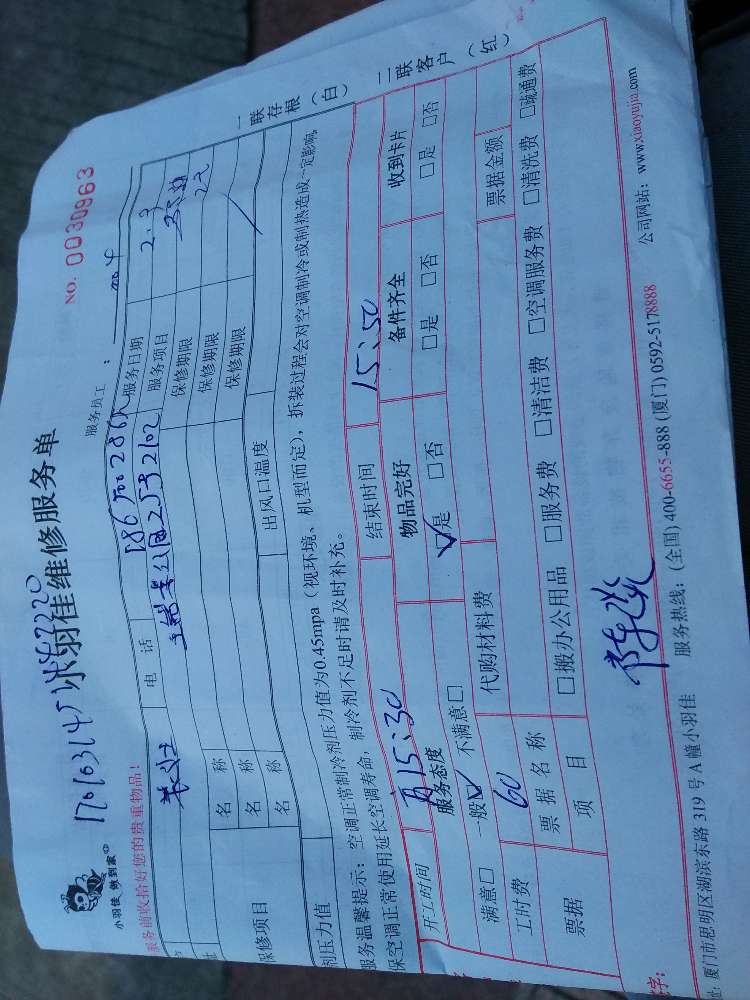 NO. 0030963
小羽佳维修服务单
小羽佳 到家
服务前收拾好您的贵重物品!
服务员工:
电 话
服务日期 2.3
服务项目
保修期限
保修期限
保修期限
名 称
名 称
名 称
保修项目
剂压力值
出风口温度
服务温馨提示:空调正常制冷剂压力值为0.45mpa(视环境、机型而定),拆装过程会对空调制冷或制热造成一定影响,
保空调正常使用延长空调寿命,制冷剂不足时请及时补充。
一联存根(白)
二联客户(红)
开工时间 15:30 结束时间 15:50
服务态度 物品完好 备件齐全 收到卡片
满意□ 一般☑ 不满意□ ☑是 □否 □是 □否 □是 □否
工时费 60 代购材料费
票据 票据名称 票据金额
项 目 □搬办公用品 □服务费 □清洁费 □空调服务费 □清洗费 □疏通费
字:
址:厦门市思明区湖滨东路 319 号 A 幢小羽佳 服务热线:(全国) 400-6655-888 (厦门) 0592-5178888 公司网站:www.xiaoyujia.com